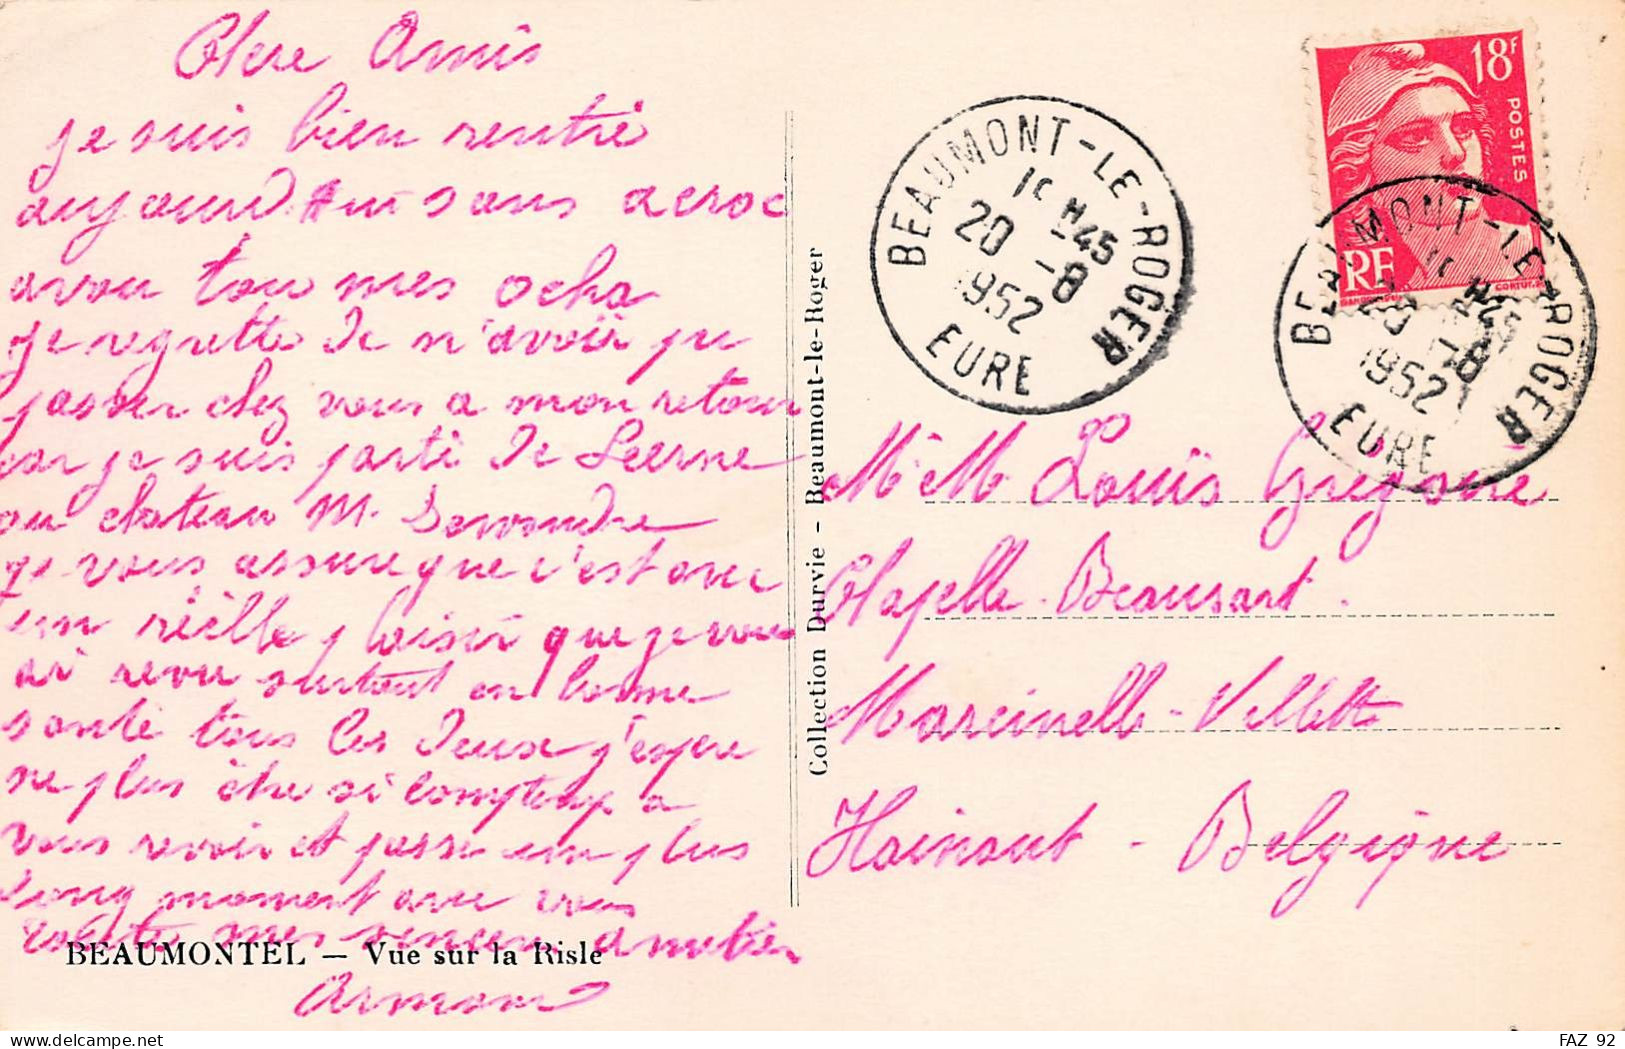 Chere Amis
je suis bien rentré
aujourd'hui sans acroc
avou tou mes
je regrette de n'avoir pu
passer chez vous a mon retour
car je suis parti de Leerne
au chateau M.
je vous assure que c'est avec
un réelle plaisir que je vous
ai revu surtout en bonne
santé tous les deux j'espere
ne plus être si longtemp a
vous revoir et passé un plus
long moment avec vous
mes sincere amitier
Armand
BEAUMONTEL — Vue sur la Risle
Collection Durvie - Beaumont-le-Roger
BEAUMONT-LE-ROGER
H45
20 -8
1952
EURE
18F
POSTES
RF
BEAUMONT-LE-ROGER
H45
20 -8
1952
EURE
Mr M Louis Grégoire
Chapelle-Beausart.
Marcinelle-Villette
Hainaut - Belgique
FAZ 92